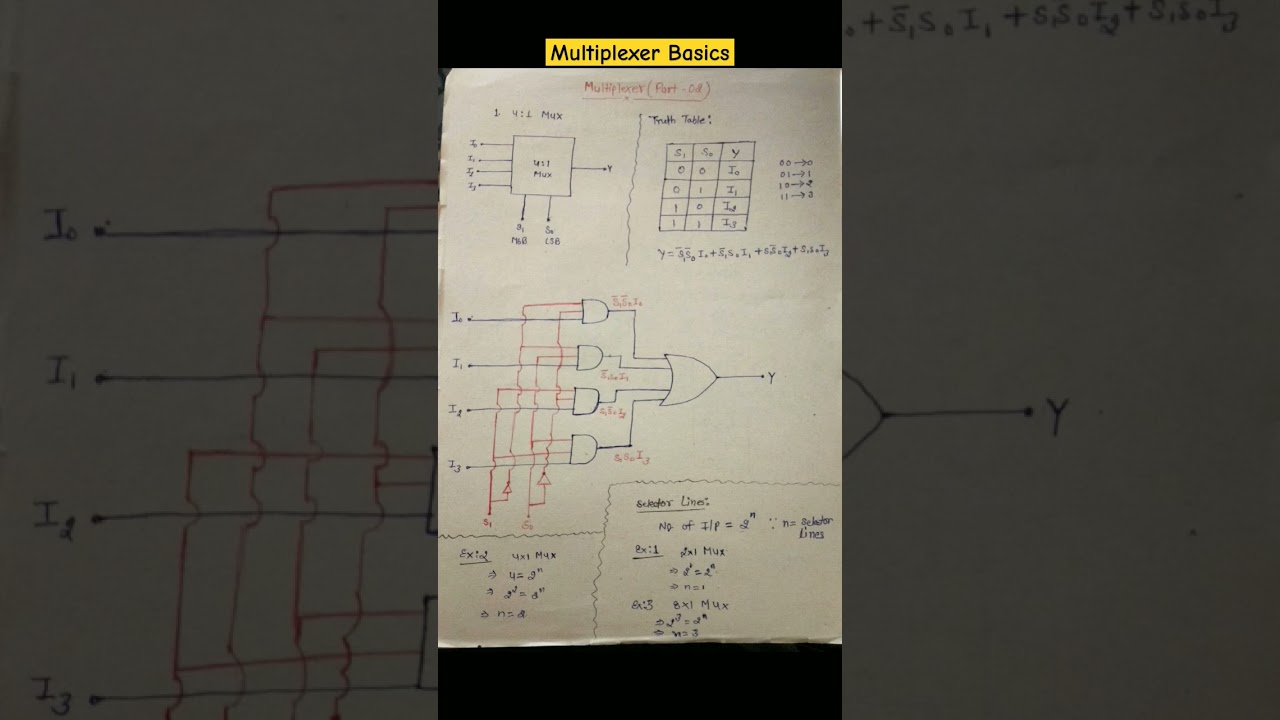 Multiplexer Basics
Multiplexer (Part-02)
1. 4:1 Mux
I₀
I₁
I₂
I₃
4:1
Mux
Y
S₁
MSB
S₀
LSB
Truth Table:
S₁ S₀ Y
0 0 I₀
0 1 I₁
1 0 I₂
1 1 I₃
00→0
01→1
10→2
11→3
Y = S̄₁S̄₀I₀ + S̄₁S₀I₁ + S₁S̄₀I₂ + S₁S₀I₃
I₀
I₁
I₂
I₃
S̄₁S̄₀I₀
S̄₁S₀I₁
S₁S̄₀I₂
S₁S₀I₃
Y
S₁
S₀
Selector Lines:
No of I/P = 2ⁿ ∵ n = Selector
Lines
Ex:1 2x1 Mux
⇒ 2¹ = 2ⁿ
⇒ n = 1
Ex:3 8x1 Mux
⇒ 2³ = 2ⁿ
⇒ n = 3
Ex:2 4x1 Mux
⇒ 4 = 2ⁿ
⇒ 2² = 2ⁿ
⇒ n = 2
₀ + S̄₁S₀I₁ + S₁S₀I₂ + S₁S₀I₃
I₀
I₁
I₂
I₃
Y